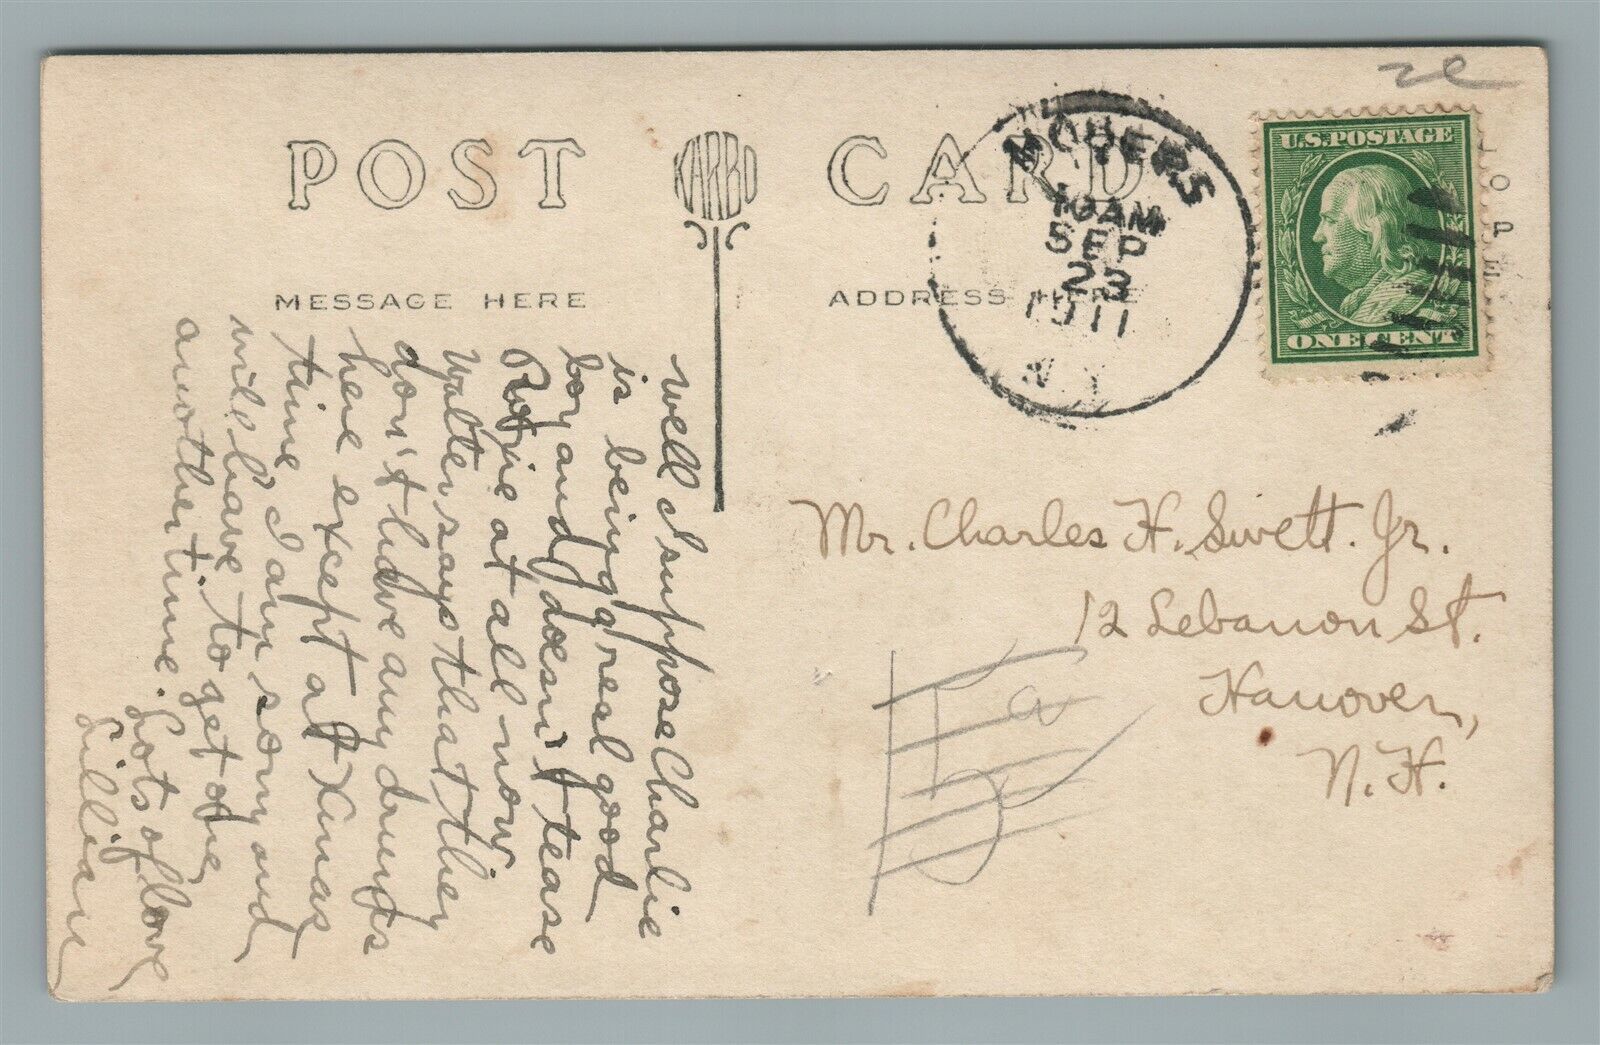 POST KARBO CARD
MESSAGE HERE
ADDRESS HERE
MOOERS
10 AM
SEP
23
1911
N.Y.
U.S. POSTAGE
ONE CENT
PLACE
Well I suppose Charlie
is being a real good
boy and doesn't tease
at all now.
Walter says that they
don't have any drums
here except at Xmas
time I am sorry and
will have to get one
another time.
Lots of love
Lillian
Mr. Charles H. Swett. Jr.
12 Lebanon St.
Hanover,
N.H.